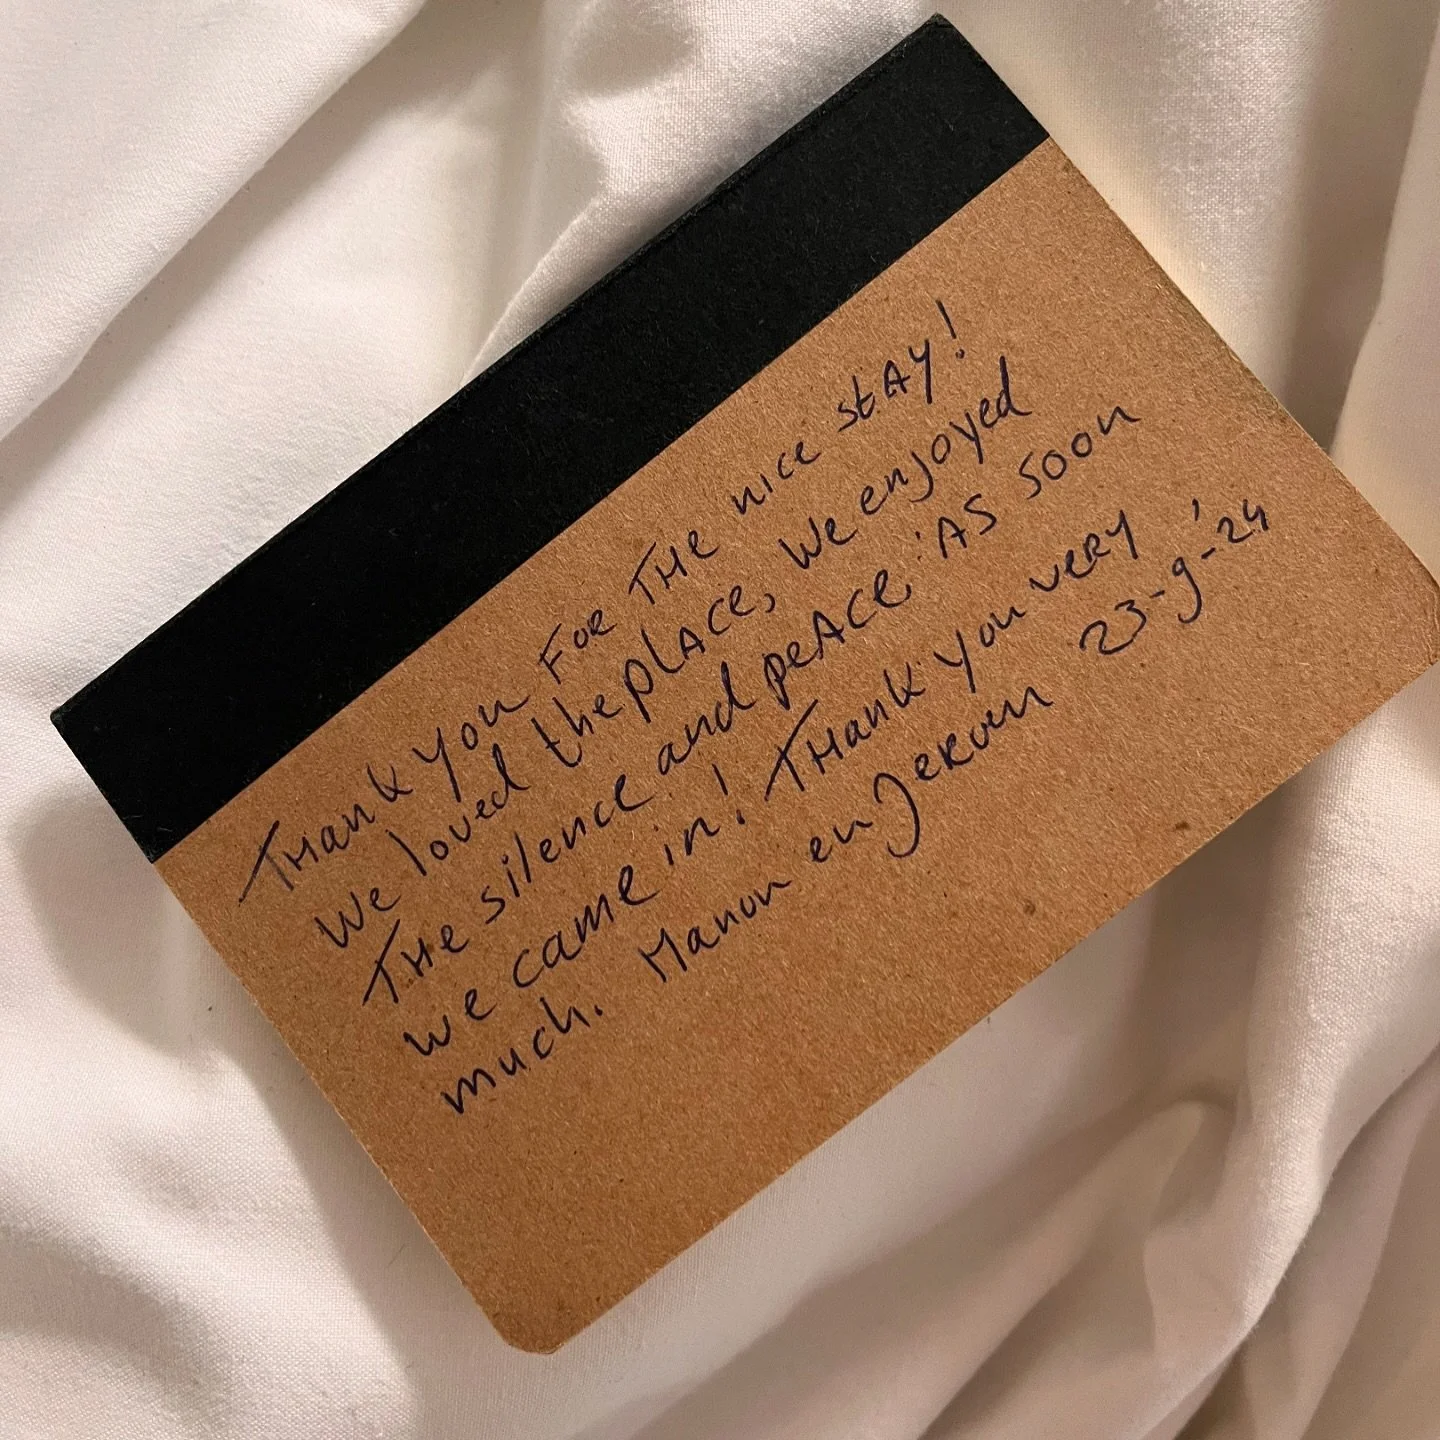 THank you FOR THe nice stAY!
We loved the plAce, We enjoyed
THe silence and peAce. AS soon
we came in! THank you very
much. Manon en Jeroen 23-9-'24